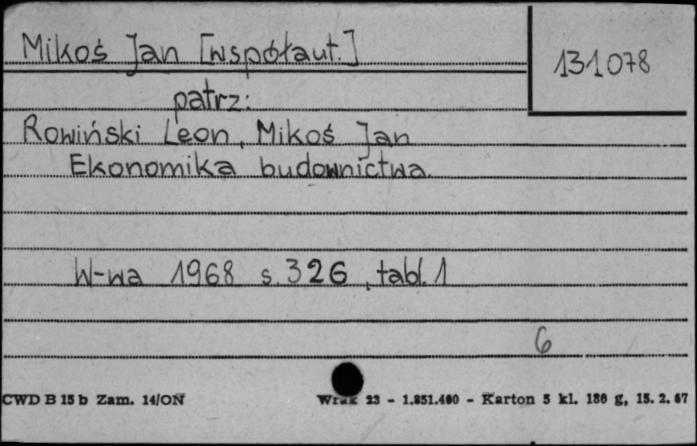 Mikoś Jan [współaut.]
131078
patrz:
Rowiński Leon, Mikoś Jan
Ekonomika budownictwa.
W-wa 1968 s. 326, tabl. 1
6
CWD B 15 b Zam. 14/ON 23 - 1.851.400 - Karton 5 kl. 180 g, 15. 2. 67